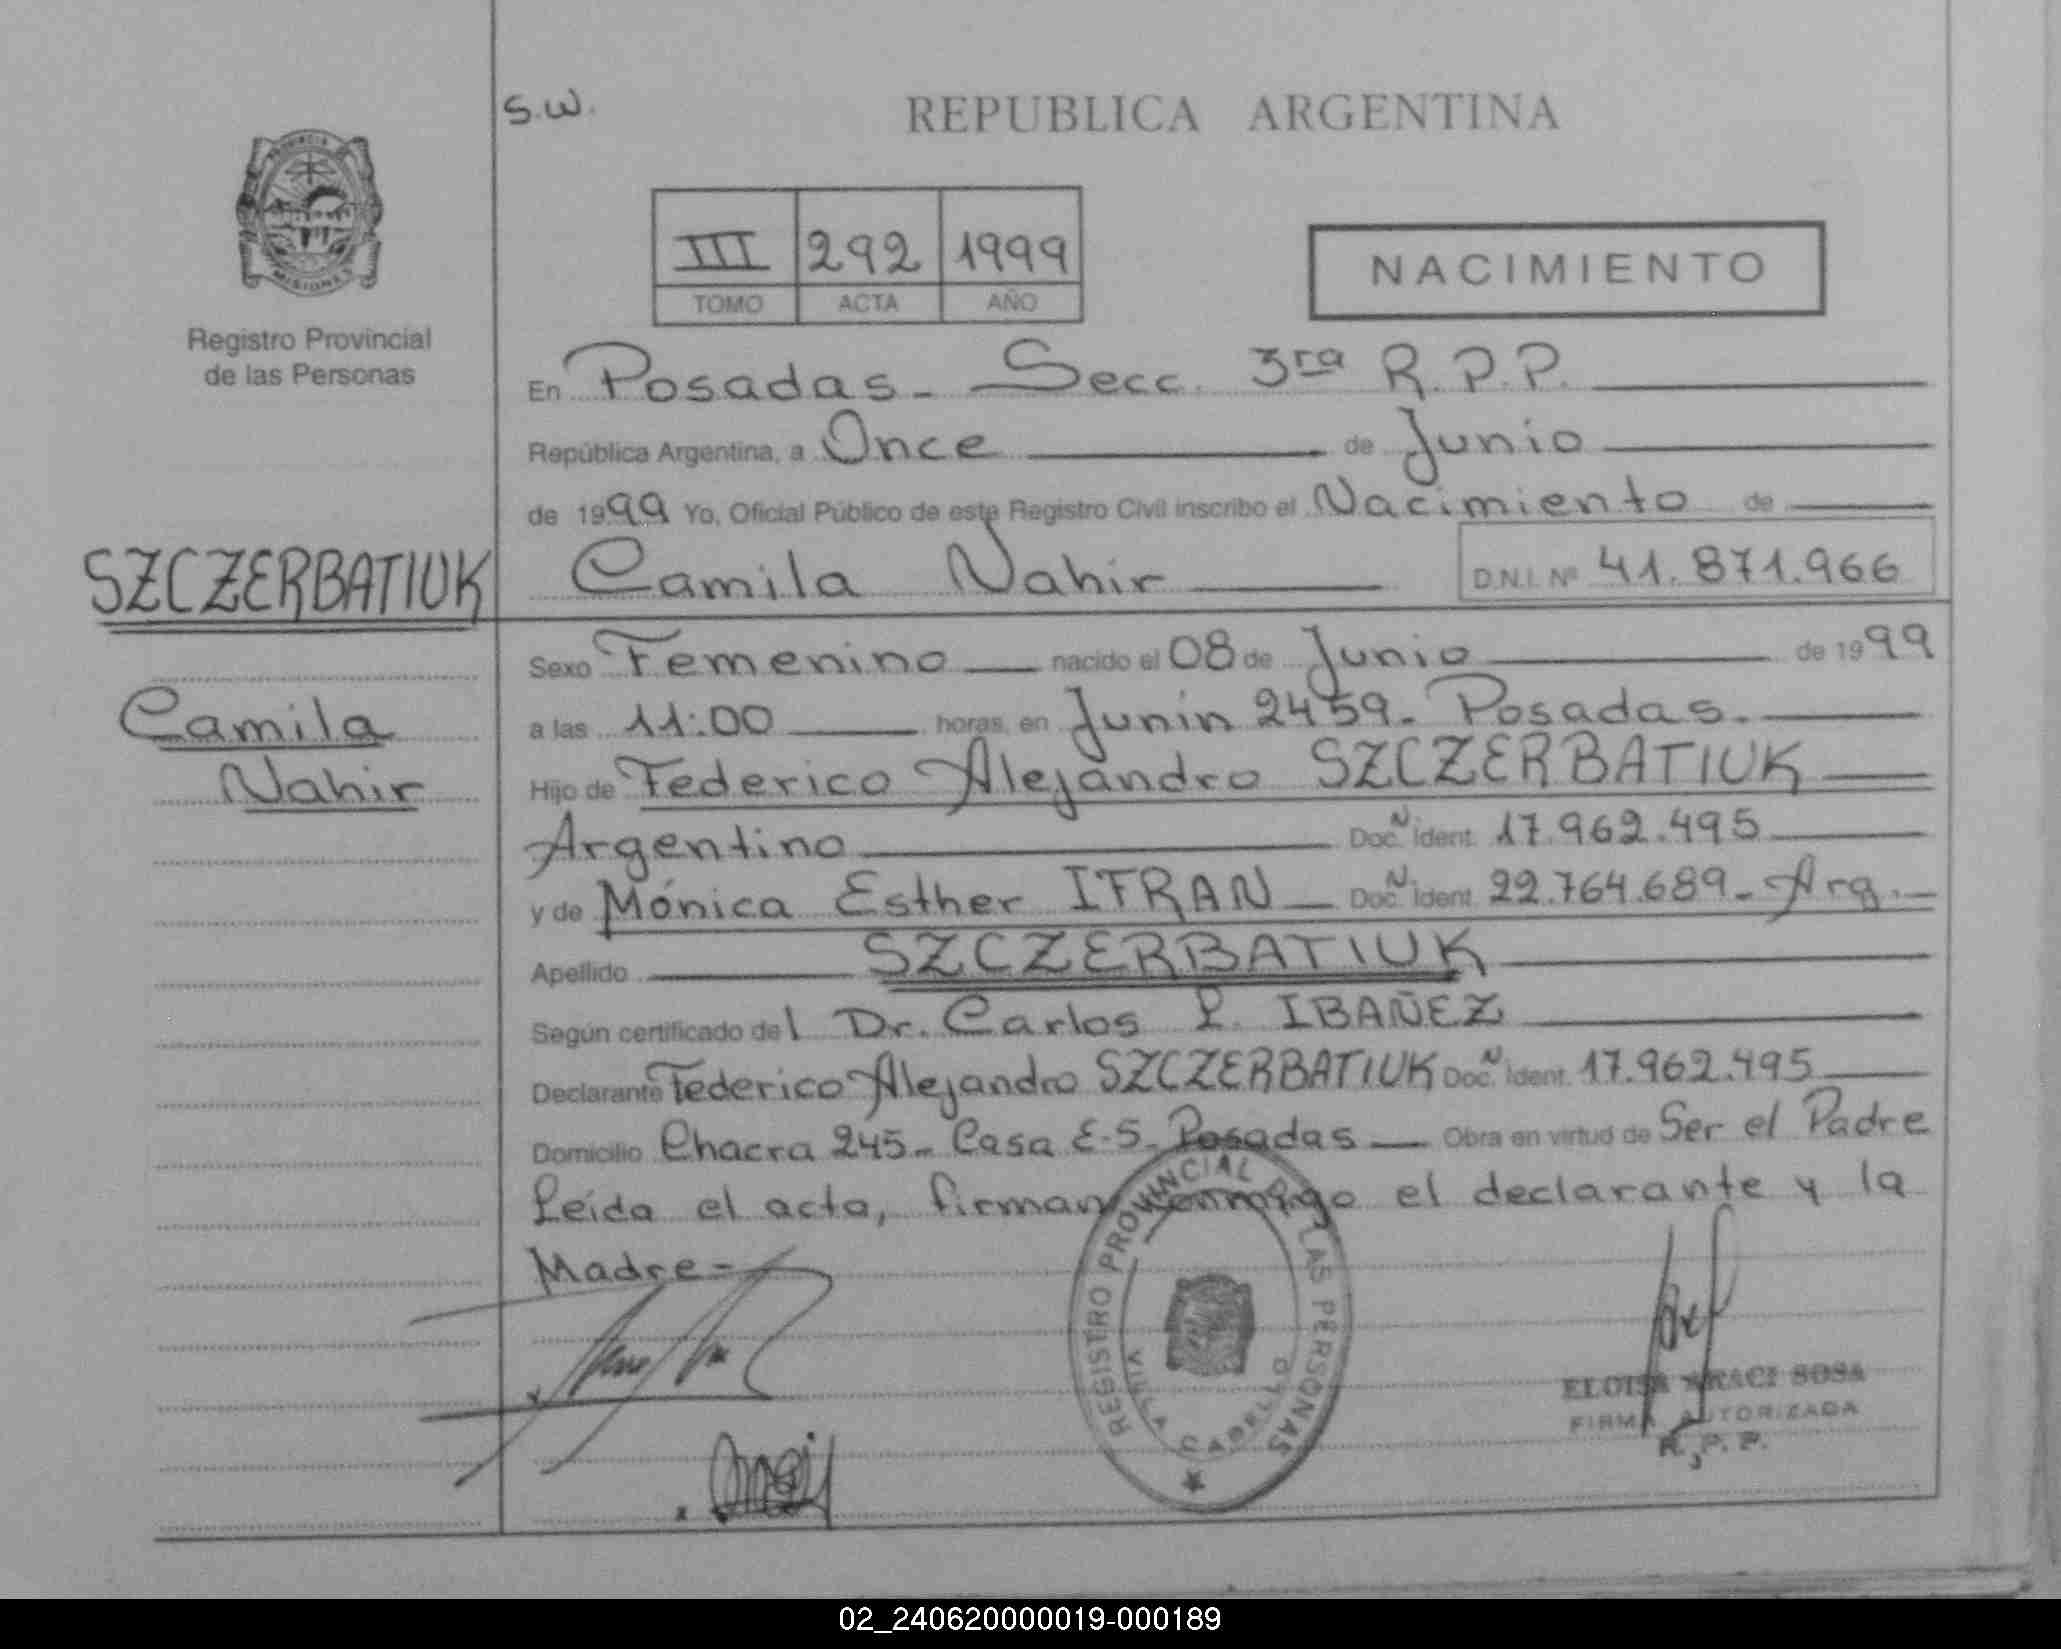 S.W.
REPUBLICA ARGENTINA
PROVINCIA DE
MISIONES
Registro Provincial
de las Personas
III 292 1999
TOMO ACTA AÑO
NACIMIENTO
En Posadas - Secc. 3ra R.P.P.
República Argentina, a Once de Junio
de 1999 Yo, Oficial Público de este Registro Civil inscribo el Nacimiento de
SZCZERBATIUK
Camila Nahir D.N.I. Nº 41.871.966
Sexo Femenino nacido el 08 de Junio de 1999
Camila
Nahir
a las 11:00 horas, en Junín 2459. Posadas.
Hijo de Federico Alejandro SZCZERBATIUK
Argentino Doc. N. Ident. 17.962.495
y de Mónica Esther IFRAN Doc. N. Ident. 22.764.689 - Arg.
Apellido SZCZERBATIUK
Según certificado del Dr. Carlos L. IBAÑEZ
Declarante Federico Alejandro SZCZERBATIUK Doc. N. Ident. 17.962.495
Domicilio Chacra 245 - Casa E-5 - Posadas Obra en virtud de Ser el Padre
Leída el acta, firman conmigo el declarante y la
Madre -
REGISTRO PROVINCIAL DE LAS PERSONAS
VILLA CABELLO
ELOISA ARACI SOSA
FIRMA AUTORIZADA
R.P.P.
02_240620000019-000189